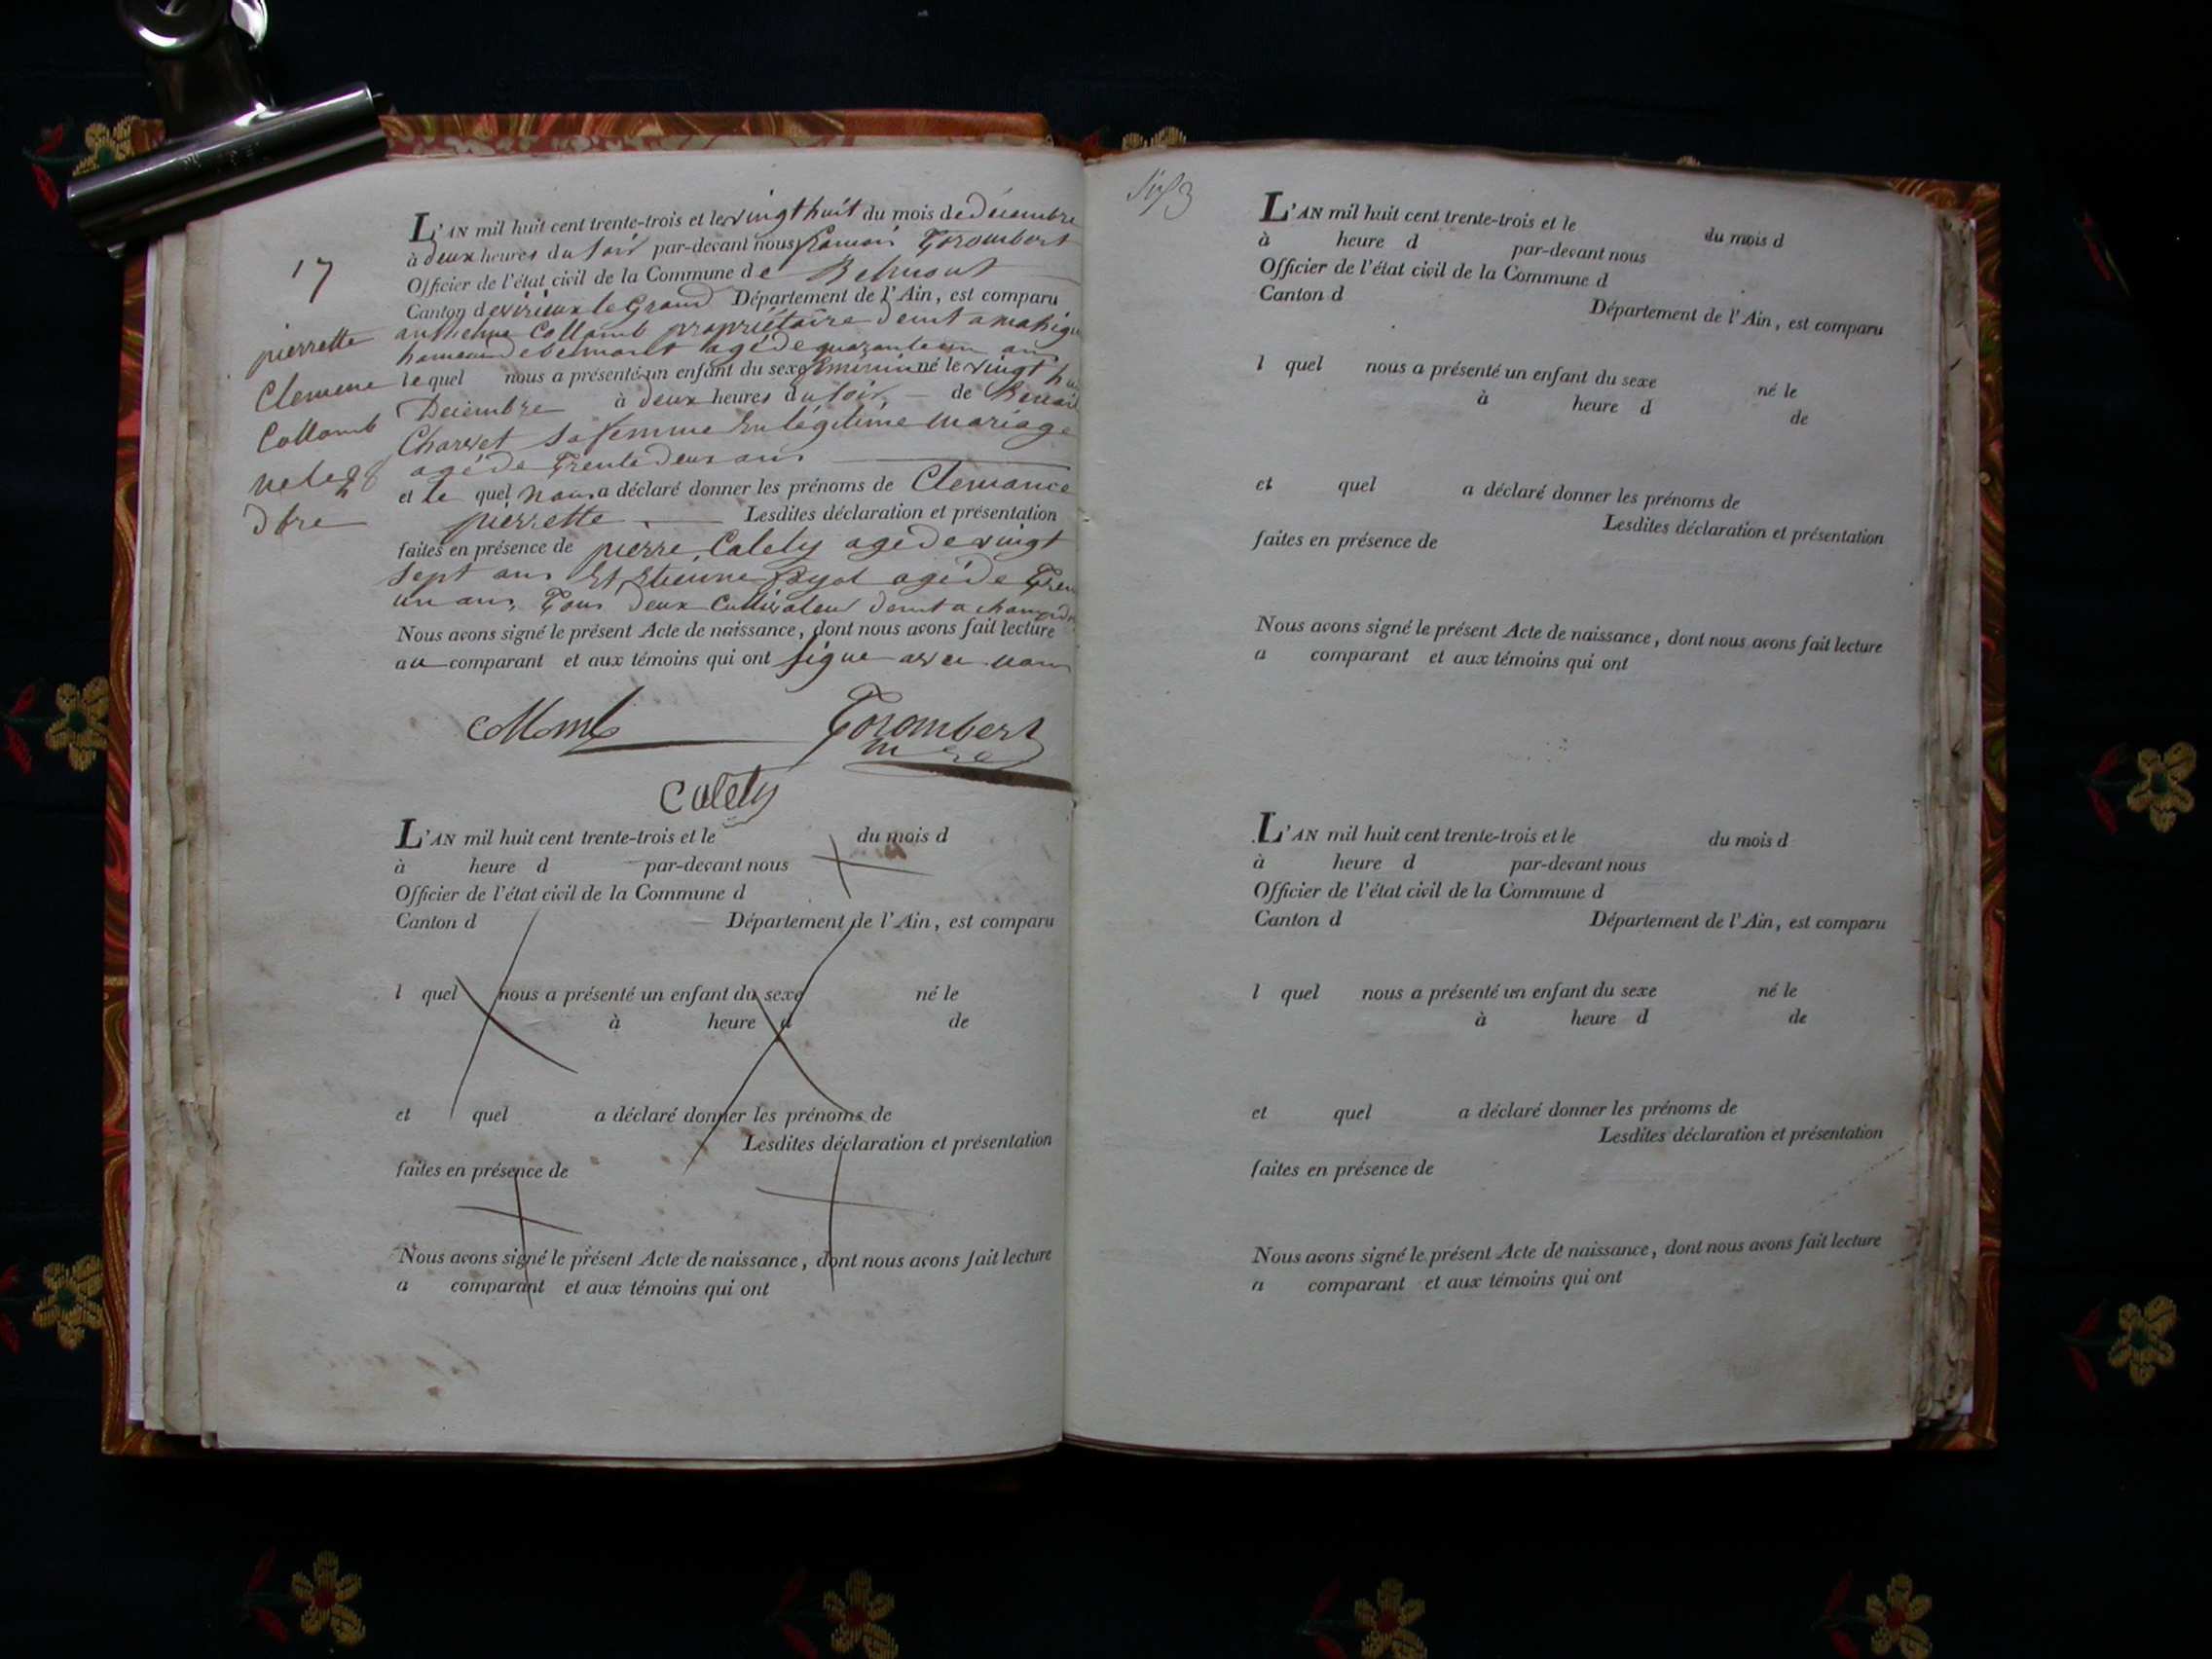 L'AN mil huit cent trente-trois et le vingt huit du mois de décembre
à deux heures du soir par-devant nous Tyrombert
Officier de l'état civil de la Commune de Belmont
Canton de virieux le Grand Département de l'Ain, est comparu
anthelme Collomb propriétaire demt a
hameau de belmont agé de quarante un ans
lequel nous a présenté un enfant du sexe féminin né le vingt
Décembre à deux heures du soir de
Charvet sa femme En légitime mariage
agé de Trente deux ans
et le quel nous a déclaré donner les prénoms de Clemance
pierrette Lesdites déclaration et présentation
faites en présence de pierre Catety agé de vingt
sept ans Et Etienne agé de
un ans, Tous deux Cultivateur demt a
Nous avons signé le présent Acte de naissance, dont nous avons fait lecture
au comparant et aux témoins qui ont signé avec nous
17
pierrette
Clemene
Collomb
né le 28
Collomb
Catety
L'AN mil huit cent trente-trois et le du mois d
à heure d par-devant nous
Officier de l'état civil de la Commune d
Canton d Département de l'Ain, est comparu
l quel nous a présenté un enfant du sexe né le
à heure d de
et quel a déclaré donner les prénoms de
Lesdites déclaration et présentation
faites en présence de
Nous avons signé le présent Acte de naissance, dont nous avons fait lecture
a comparant et aux témoins qui ont
L'AN mil huit cent trente-trois et le du mois d
à heure d par-devant nous
Officier de l'état civil de la Commune d
Canton d Département de l'Ain, est comparu
l quel nous a présenté un enfant du sexe né le
à heure d de
et quel a déclaré donner les prénoms de
Lesdites déclaration et présentation
faites en présence de
Nous avons signé le présent Acte de naissance, dont nous avons fait lecture
a comparant et aux témoins qui ont
L'AN mil huit cent trente-trois et le du mois d
à heure d par-devant nous
Officier de l'état civil de la Commune d
Canton d Département de l'Ain, est comparu
l quel nous a présenté un enfant du sexe né le
à heure d de
et quel a déclaré donner les prénoms de
Lesdites déclaration et présentation
faites en présence de
Nous avons signé le présent Acte de naissance, dont nous avons fait lecture
a comparant et aux témoins qui ont